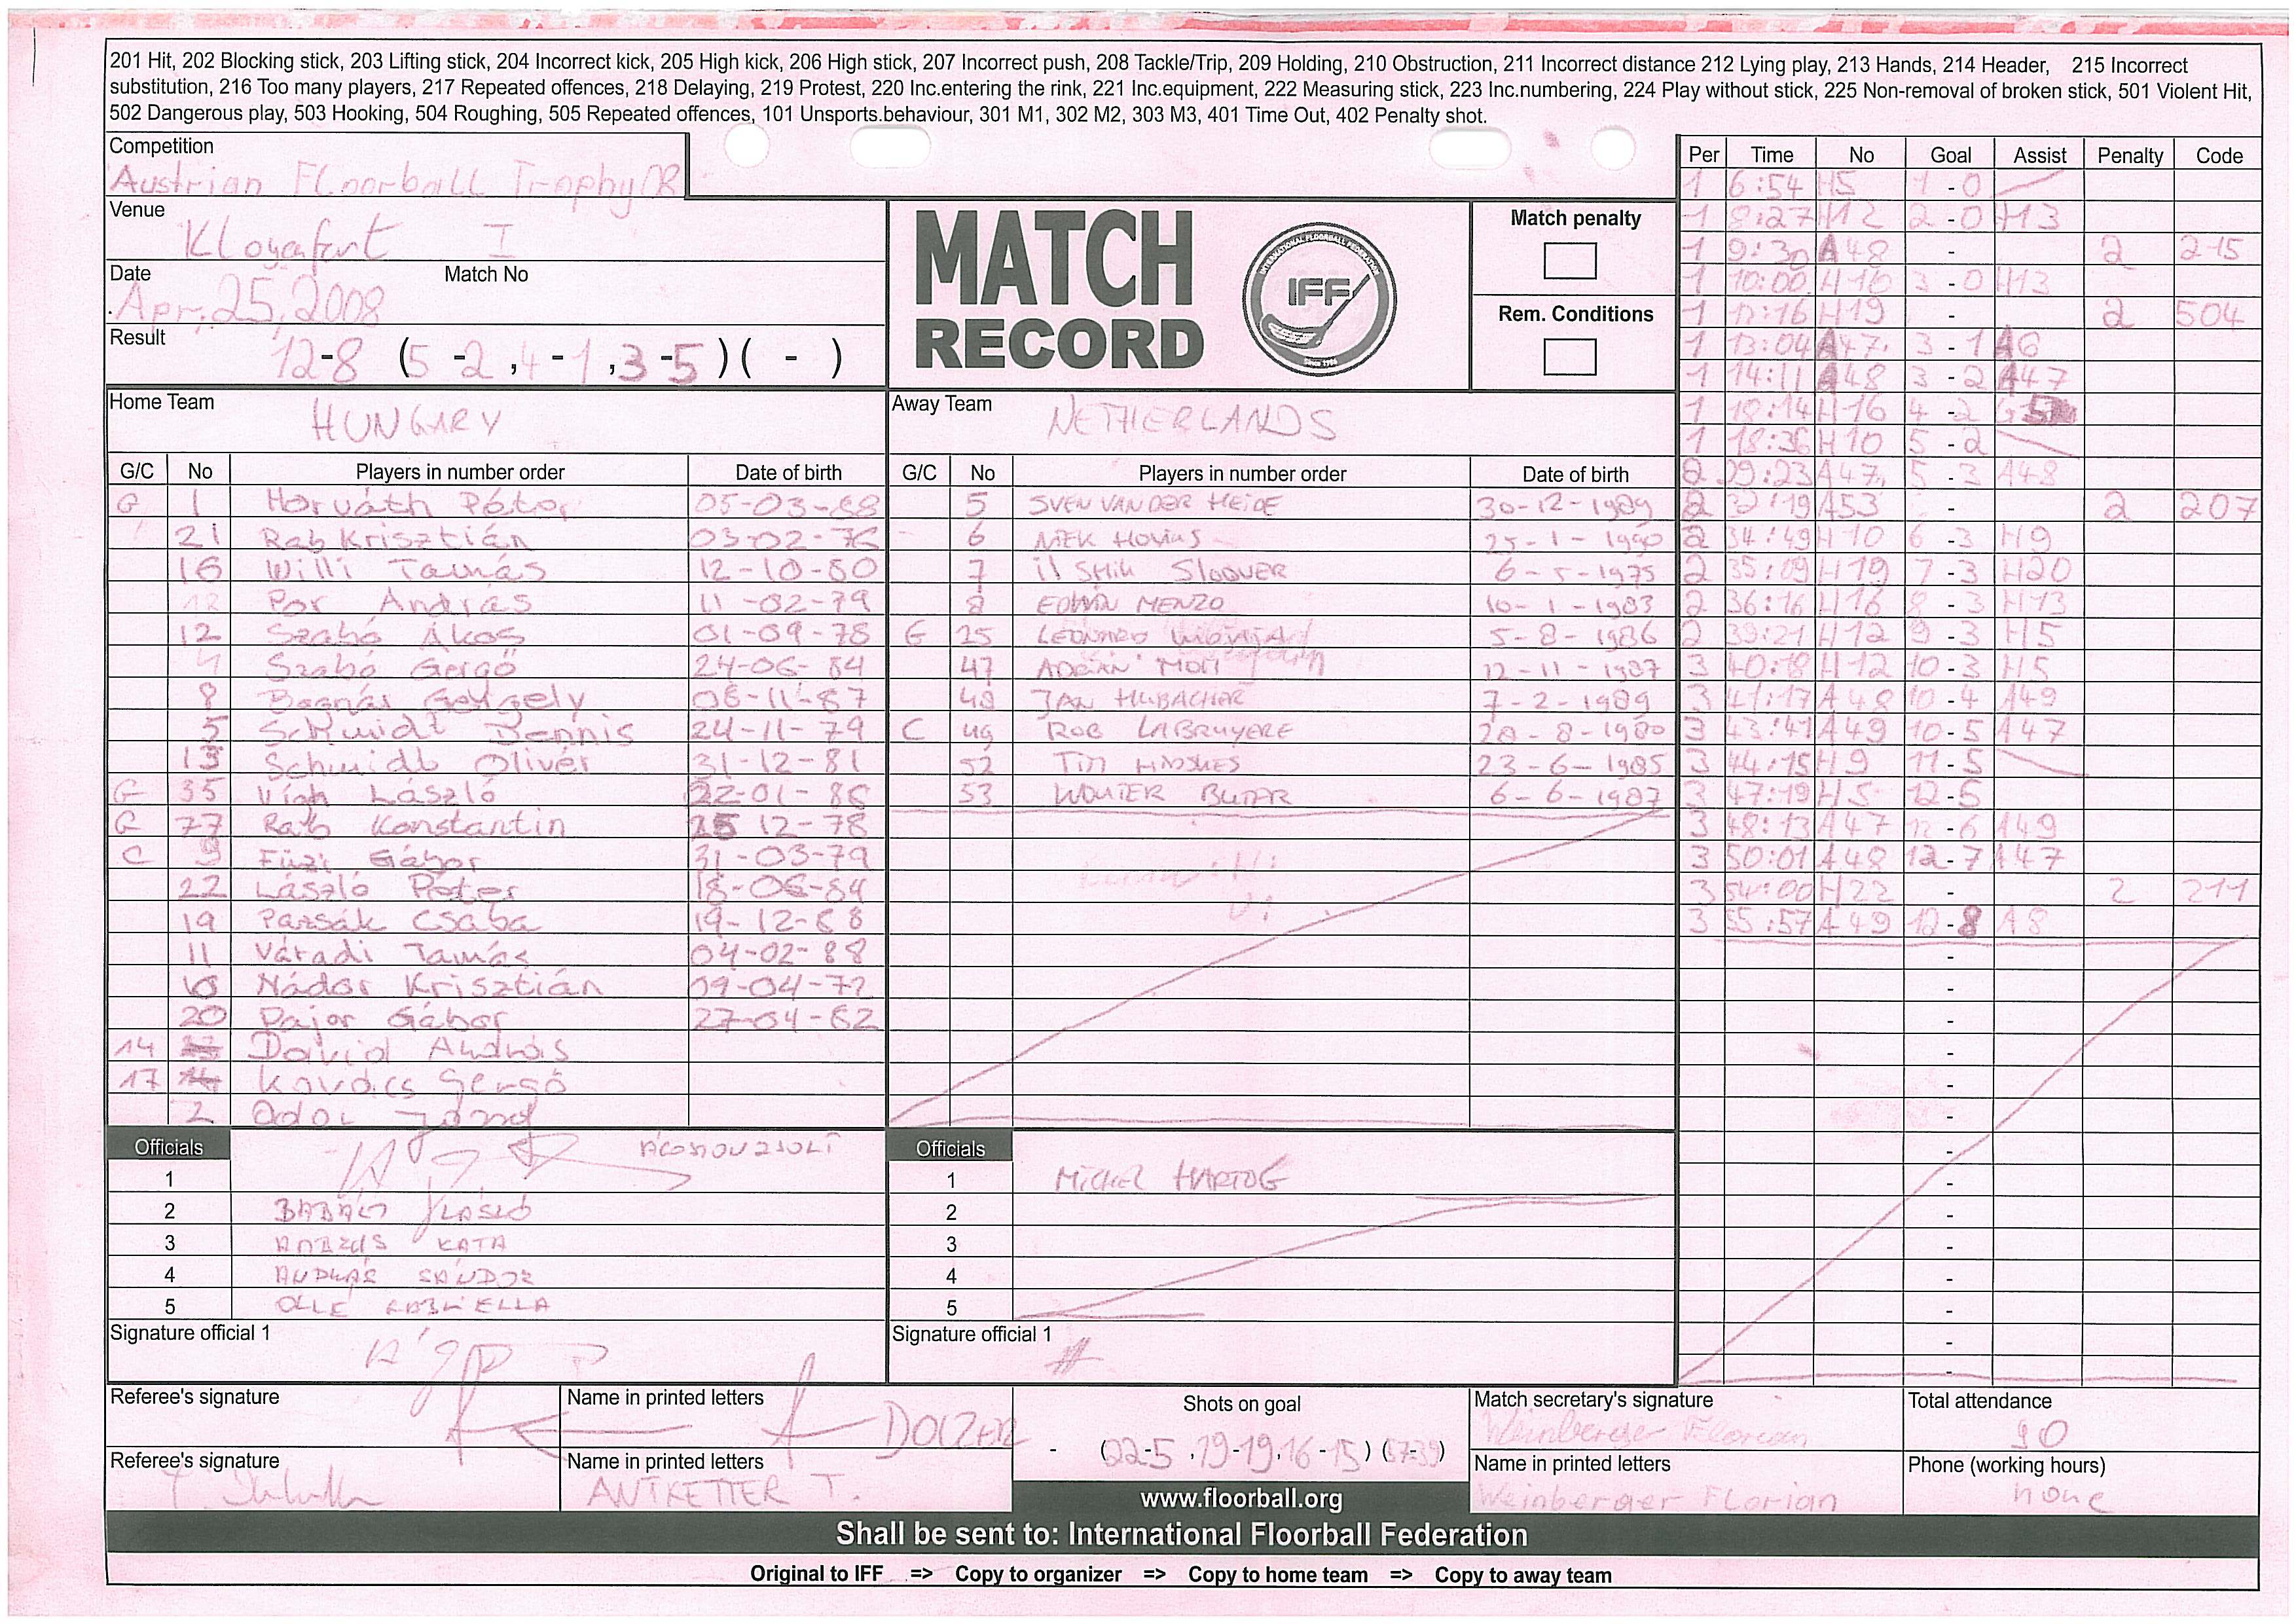 201 Hit, 202 Blocking stick, 203 Lifting stick, 204 Incorrect kick, 205 High kick, 206 High stick, 207 Incorrect push, 208 Tackle/Trip, 209 Holding, 210 Obstruction, 211 Incorrect distance 212 Lying play, 213 Hands, 214 Header, 215 Incorrect
substitution, 216 Too many players, 217 Repeated offences, 218 Delaying, 219 Protest, 220 Inc.entering the rink, 221 Inc.equipment, 222 Measuring stick, 223 Inc.numbering, 224 Play without stick, 225 Non-removal of broken stick, 501 Violent Hit,
502 Dangerous play, 503 Hooking, 504 Roughing, 505 Repeated offences, 101 Unsports.behaviour, 301 M1, 302 M2, 303 M3, 401 Time Out, 402 Penalty shot.
Competition
Austrian Floorball Trophy
Venue
I
Date Match No
Apr. 25, 2008
Result
12-8 (5-2, 4-1, 3-5) ( - )
MATCH
RECORD
INTERNATIONAL FLOORBALL FEDERATION
IFF
Match penalty
Rem. Conditions
Home Team
HUNGARY
G/C No Players in number order Date of birth
G 1 Horváth Péter 05-03-88
21 Rab Krisztián 03-02-76
16 Willi Tamás 12-10-80
Por András 11-02-79
12 Szabó Ákos 01-09-78
Szabó Gergő 24-06-84
8 Gergely 08-11-87
5 Schmidt Dennis 24-11-79
13 Schmidt Olivér 31-12-81
G 35 Vigh László 22-01-86
G 77 Rab Konstantin 12-78
C 9 Füzi Gábor 31-03-79
22 László Péter 18-06-84
19 Pazsák Csaba 19-12-88
11 Váradi Tamás 04-02-88
Nádor Krisztián 09-04-72
20 Pajor Gábor 27-04-82
14 Dávid András
17 Kovács Gergő
2
Away Team
NETHERLANDS
G/C No Players in number order Date of birth
5 SVEN VAN DER HEIDE 30-12-1989
6 NIEK 25-1-1990
7 6-5-1975
8 EDWIN MENZO 10-1-1983
G 25 LEONARD 5-8-1986
47 ADRIAN 12-11-1987
48 JAN HUBACHER 7-2-1989
C 49 ROB LABRUYERE 20-8-1980
52 TIM 23-6-1985
53 WOUTER 6-6-1987
Officials
1
2 LÁSZLÓ
3 KATA
4 ANDRÁS SÁNDOR
5
Signature official 1
Officials
1 MICHEL HARTOG
2
3
4
5
Signature official 1
Per Time No Goal Assist Penalty Code
1 6:54 H5 1-0
1 8:27 H12 2-0 H13
1 9:30 A48 - 2 215
1 10:00 H16 3-0 H13
1 H19 - 2 504
1 13:04 A47 3-1 A6
1 14:11 A48 3-2 A47
1 18:14 H16 4-2
1 18:36 H10 5-2
2 29:23 A47 5-3 A48
2 32:19 A53 - 2 207
2 34:49 H10 6-3 H9
2 35:09 H19 7-3 H20
2 36:16 H16 8-3 H13
2 39:21 H12 9-3 H5
3 40:18 H12 10-3 H5
3 41:17 A48 10-4 A49
3 43:41 A49 10-5 A47
3 44:15 H9 11-5
3 47:19 H5 12-5
3 48:13 A47 12-6 A49
3 50:01 A48 12-7 A47
3 54:00 H22 - 2 211
3 55:57 A49 12-8 A8
Referee's signature
Name in printed letters
DOLZER
Referee's signature
Name in printed letters
ANTKETTER T.
Shots on goal
- (22-5, 19-19, 16-15) (57-39)
www.floorball.org
Match secretary's signature
Weinberger Florian
Name in printed letters
Weinberger Florian
Total attendance
90
Phone (working hours)
none
Shall be sent to: International Floorball Federation
Original to IFF => Copy to organizer => Copy to home team => Copy to away team